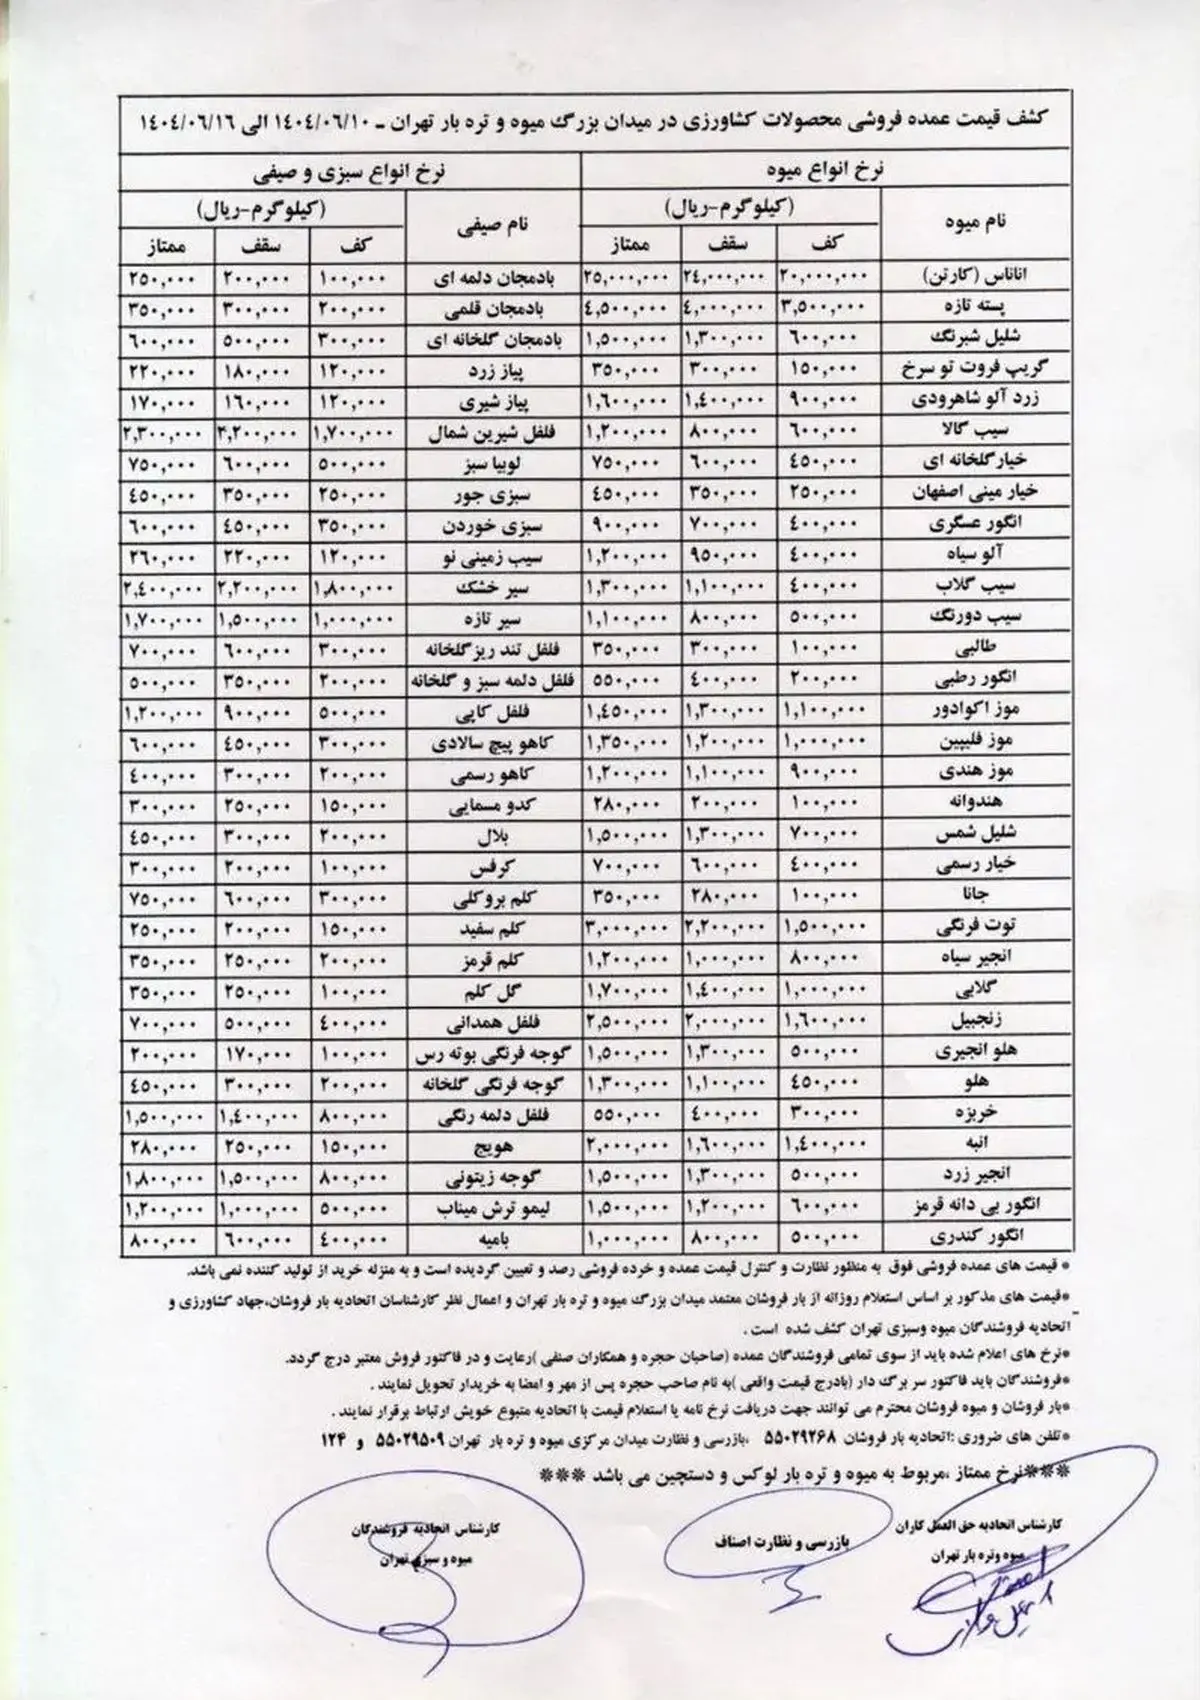 کشف قیمت عمده فروشی محصولات کشاورزی در میدان بزرگ میوه و تره بار تهران ـ ۱۴۰۴/۰۶/۱۰ الی ۱۴۰۴/۰۶/۱۶
نرخ انواع میوه نرخ انواع سبزی و صیفی
نام میوه (کیلوگرم-ریال) نام صیفی (کیلوگرم-ریال)
کف سقف ممتاز کف سقف ممتاز
اناناس (کارتن) ۲۰,۰۰۰,۰۰۰ ۲٤,۰۰۰,۰۰۰ ۲۵,۰۰۰,۰۰۰ بادمجان دلمه ای ۱۰۰,۰۰۰ ۲۰۰,۰۰۰ ۲۵۰,۰۰۰
پسته تازه ۳,۵۰۰,۰۰۰ ٤,۰۰۰,۰۰۰ ٤,۵۰۰,۰۰۰ بادمجان قلمی ۲۰۰,۰۰۰ ۳۰۰,۰۰۰ ۳۵۰,۰۰۰
شلیل شبرنگ ٦۰۰,۰۰۰ ۱,۳۰۰,۰۰۰ ۱,۵۰۰,۰۰۰ بادمجان گلخانه ای ۳۰۰,۰۰۰ ۵۰۰,۰۰۰ ٦۰۰,۰۰۰
گریپ فروت تو سرخ ۱۵۰,۰۰۰ ۳۰۰,۰۰۰ ۳۵۰,۰۰۰ پیاز زرد ۱۲۰,۰۰۰ ۱۸۰,۰۰۰ ۲۲۰,۰۰۰
زرد آلو شاهرودی ۹۰۰,۰۰۰ ۱,٤۰۰,۰۰۰ ۱,٦۰۰,۰۰۰ پیاز شیری ۱۲۰,۰۰۰ ۱٦۰,۰۰۰ ۱۷۰,۰۰۰
سیب گالا ٦۰۰,۰۰۰ ۸۰۰,۰۰۰ ۱,۲۰۰,۰۰۰ فلفل شیرین شمال ۱,۷۰۰,۰۰۰ ۲,۳۰۰,۰۰۰
خیارگلخانه ای ٤۵۰,۰۰۰ ٦۰۰,۰۰۰ ۷۵۰,۰۰۰ لوبیا سبز ۵۰۰,۰۰۰ ٦۰۰,۰۰۰ ۷۵۰,۰۰۰
خیار مینی اصفهان ۲۵۰,۰۰۰ ۳۵۰,۰۰۰ ٤۵۰,۰۰۰ سبزی جور ۲۵۰,۰۰۰ ۳۵۰,۰۰۰ ٤۵۰,۰۰۰
انگور عسگری ٤۰۰,۰۰۰ ۷۰۰,۰۰۰ ۹۰۰,۰۰۰ سبزی خوردن ۳۵۰,۰۰۰ ٤۵۰,۰۰۰ ٦۰۰,۰۰۰
آلو سیاه ٤۰۰,۰۰۰ ۹۵۰,۰۰۰ ۱,۲۰۰,۰۰۰ سیب زمینی نو ۱۲۰,۰۰۰ ۲۲۰,۰۰۰ ۲٦۰,۰۰۰
سیب گلاب ٤۰۰,۰۰۰ ۱,۱۰۰,۰۰۰ ۱,۳۰۰,۰۰۰ سیر خشک ۱,۸۰۰,۰۰۰ ۲,۲۰۰,۰۰۰ ۲,٤۰۰,۰۰۰
سیب دورنگ ۵۰۰,۰۰۰ ۸۰۰,۰۰۰ ۱,۱۰۰,۰۰۰ سیر تازه ۱,۰۰۰,۰۰۰ ۱,۵۰۰,۰۰۰ ۱,۷۰۰,۰۰۰
طالبی ۱۰۰,۰۰۰ ۳۰۰,۰۰۰ ۳۵۰,۰۰۰ فلفل تند ریزگلخانه ۳۰۰,۰۰۰ ٦۰۰,۰۰۰ ۷۰۰,۰۰۰
انگور رطبی ۲۰۰,۰۰۰ ٤۰۰,۰۰۰ ۵۵۰,۰۰۰ فلفل دلمه سبز و گلخانه ۲۰۰,۰۰۰ ۳۵۰,۰۰۰ ۵۰۰,۰۰۰
موز اکوادور ۱,۱۰۰,۰۰۰ ۱,۳۰۰,۰۰۰ ۱,٤۵۰,۰۰۰ فلفل کاپی ۵۰۰,۰۰۰ ۹۰۰,۰۰۰ ۱,۲۰۰,۰۰۰
موز فلیپین ۱,۰۰۰,۰۰۰ ۱,۲۰۰,۰۰۰ ۱,۳۵۰,۰۰۰ کاهو پیچ سالادی ۳۰۰,۰۰۰ ٤۵۰,۰۰۰ ٦۰۰,۰۰۰
موز هندی ۹۰۰,۰۰۰ ۱,۱۰۰,۰۰۰ ۱,۲۰۰,۰۰۰ کاهو رسمی ۲۰۰,۰۰۰ ۳۰۰,۰۰۰ ٤۰۰,۰۰۰
هندوانه ۱۰۰,۰۰۰ ۲۰۰,۰۰۰ ۲۸۰,۰۰۰ کدو مسمایی ۱۵۰,۰۰۰ ۲۵۰,۰۰۰ ۳۰۰,۰۰۰
شلیل شمس ۷۰۰,۰۰۰ ۱,۳۰۰,۰۰۰ ۱,۵۰۰,۰۰۰ بلال ۲۰۰,۰۰۰ ۳۰۰,۰۰۰ ٤۵۰,۰۰۰
خیار رسمی ٤۰۰,۰۰۰ ٦۰۰,۰۰۰ ۷۰۰,۰۰۰ کرفس ۱۰۰,۰۰۰ ۲۰۰,۰۰۰ ۳۰۰,۰۰۰
جانا ۱۰۰,۰۰۰ ۲۸۰,۰۰۰ ۳۵۰,۰۰۰ کلم بروکلی ۳۰۰,۰۰۰ ٦۰۰,۰۰۰ ۷۵۰,۰۰۰
توت فرنگی ۱,۵۰۰,۰۰۰ ۲,۲۰۰,۰۰۰ ۳,۰۰۰,۰۰۰ کلم سفید ۱۵۰,۰۰۰ ۲۰۰,۰۰۰ ۲۵۰,۰۰۰
انجیر سیاه ۸۰۰,۰۰۰ ۱,۰۰۰,۰۰۰ ۱,۲۰۰,۰۰۰ کلم قرمز ۲۰۰,۰۰۰ ۲۵۰,۰۰۰ ۳۵۰,۰۰۰
گلابی ۱,۰۰۰,۰۰۰ ۱,٤۰۰,۰۰۰ ۱,۷۰۰,۰۰۰ گل کلم ۱۰۰,۰۰۰ ۲۵۰,۰۰۰ ۳۵۰,۰۰۰
زنجبیل ۱,٦۰۰,۰۰۰ ۲,۰۰۰,۰۰۰ ۲,۵۰۰,۰۰۰ فلفل همدانی ٤۰۰,۰۰۰ ۵۰۰,۰۰۰ ۷۰۰,۰۰۰
هلو انجیری ۵۰۰,۰۰۰ ۱,۳۰۰,۰۰۰ ۱,۵۰۰,۰۰۰ گوجه فرنگی بوته رس ۱۰۰,۰۰۰ ۱۷۰,۰۰۰ ۲۰۰,۰۰۰
هلو ٤۵۰,۰۰۰ ۱,۱۰۰,۰۰۰ ۱,۳۰۰,۰۰۰ گوجه فرنگی گلخانه ۲۰۰,۰۰۰ ۳۰۰,۰۰۰ ٤۵۰,۰۰۰
خربزه ۳۰۰,۰۰۰ ٤۰۰,۰۰۰ ۵۵۰,۰۰۰ فلفل دلمه رنگی ۸۰۰,۰۰۰ ۱,٤۰۰,۰۰۰ ۱,۵۰۰,۰۰۰
انبه ۱,٤۰۰,۰۰۰ ۱,٦۰۰,۰۰۰ ۲,۰۰۰,۰۰۰ هویج ۱۵۰,۰۰۰ ۲۵۰,۰۰۰ ۲۸۰,۰۰۰
انجیر زرد ۵۰۰,۰۰۰ ۱,۳۰۰,۰۰۰ ۱,۵۰۰,۰۰۰ گوجه زیتونی ۸۰۰,۰۰۰ ۱,۵۰۰,۰۰۰ ۱,۸۰۰,۰۰۰
انگور بی دانه قرمز ٦۰۰,۰۰۰ ۱,۲۰۰,۰۰۰ ۱,۵۰۰,۰۰۰ لیمو ترش میناب ۵۰۰,۰۰۰ ۱,۰۰۰,۰۰۰ ۱,۲۰۰,۰۰۰
انگور کندری ۵۰۰,۰۰۰ ۸۰۰,۰۰۰ ۱,۰۰۰,۰۰۰ بامیه ٤۰۰,۰۰۰ ٦۰۰,۰۰۰ ۸۰۰,۰۰۰
* قیمت های عمده فروشی فوق به منظور نظارت و کنترل قیمت عمده و خرده فروشی رصد و تعیین گردیده است و به منزله خرید از تولید کننده نمی باشد.
*قیمت های مذکور بر اساس استعلام روزانه از بار فروشان معتمد میدان بزرگ میوه و تره بار تهران و اعمال نظر کارشناسان اتحادیه بار فروشان،جهاد کشاورزی و
اتحادیه فروشندگان میوه وسبزی تهران کشف شده است .
*نرخ های اعلام شده باید از سوی تمامی فروشندگان عمده (صاحبان حجره و همکاران صنفی )رعایت و در فاکتور فروش معتبر درج گردد.
*فروشندگان باید فاکتور سر برگ دار (بادرج قیمت واقعی )به نام صاحب حجره پس از مهر و امضا به خریدار تحویل نمایند .
*بار فروشان و میوه فروشان محترم می توانند جهت دریافت نرخ نامه یا استعلام قیمت با اتحادیه متبوع خویش ارتباط برقرار نمایند .
*تلفن های ضروری :اتحادیه بار فروشان ۵۵۰۲۹۲۶۸ ،بازرسی و نظارت میدان مرکزی میوه و تره بار تهران ۵۵۰۲۹۵۰۹ و ۱۲۴
***نرخ ممتاز ،مربوط به میوه و تره بار لوکس و دستچین می باشد ***
کارشناس اتحادیه حق العمل کاران بازرسی و نظارت اصناف کارشناس اتحادیه فروشندگان
میوه وتره بار تهران میوه و سبزی تهران